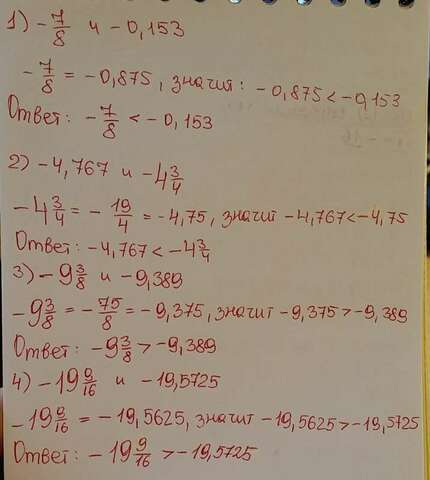 1) -7/8 и -0,153
-7/8 = -0,875, значит: -0,875 < -0,153
Ответ: -7/8 < -0,153
2) -4,767 и -4 3/4
-4 3/4 = -19/4 = -4,75, значит -4,767 < -4,75
Ответ: -4,767 < -4 3/4
3) -9 3/8 и -9,389
-9 3/8 = -75/8 = -9,375, значит -9,375 > -9,389
Ответ: -9 3/8 > -9,389
4) -19 9/16 и -19,5725
-19 9/16 = -19,5625, значит -19,5625 > -19,5725
Ответ: -19 9/16 > -19,5725